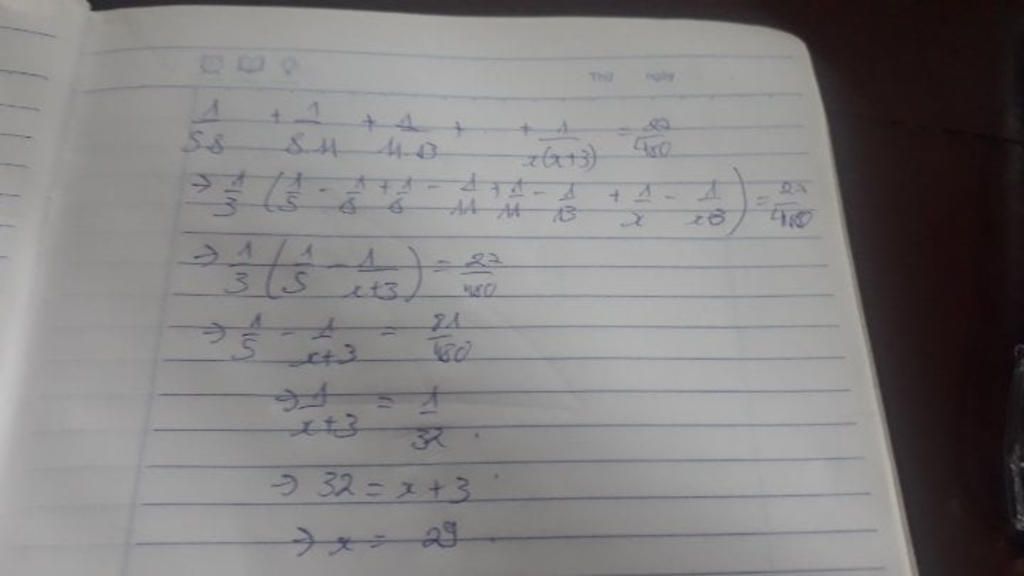 Thứ ngày
1/5.8 + 1/8.11 + 1/11.13 + .. + 1/x(x+3) = 27/480
→ 1/3 (1/5 - 1/8 + 1/8 - 1/11 + 1/11 - 1/13 + 1/x - 1/x+3) = 27/480
→ 1/3 (1/5 - 1/x+3) = 27/480
→ 1/5 - 1/x+3 = 81/480
→ 1/x+3 = 1/32 .
→ 32 = x+3
→ x = 29 .